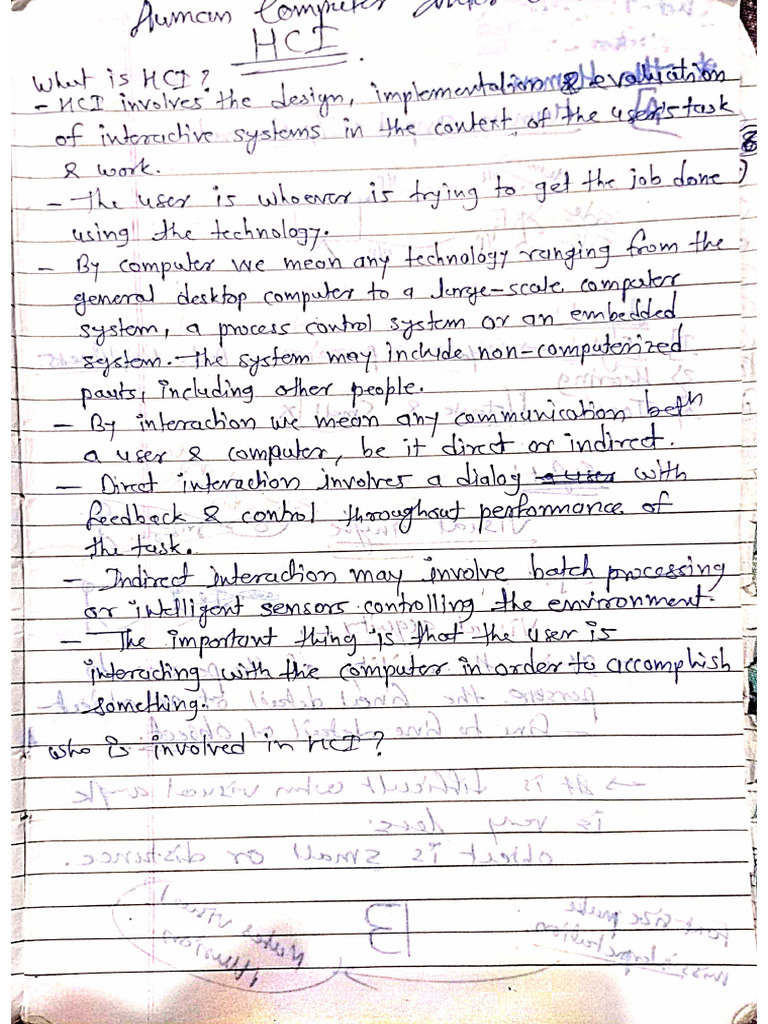 Human Computer
HCI
What is HCI?
- HCI involves the design, implementation & evaluation
of interactive systems in the context of the user's task
& work.
- The user is whoever is trying to get the job done
using the technology.
- By computer we mean any technology ranging from the
general desktop computer to a large-scale computer
system, a process control system or an embedded
system. The system may include non-computerized
parts, including other people.
- By interaction we mean any communication betn
a user & computer, be it direct or indirect.
- Direct interaction involves a dialog with
feedback & control throughout performance of
the task.
- Indirect interaction may involve batch processing
or intelligent sensors controlling the environment.
- The important thing is that the user is
interacting with the computer in order to accomplish
something.
Who is involved in HCI?